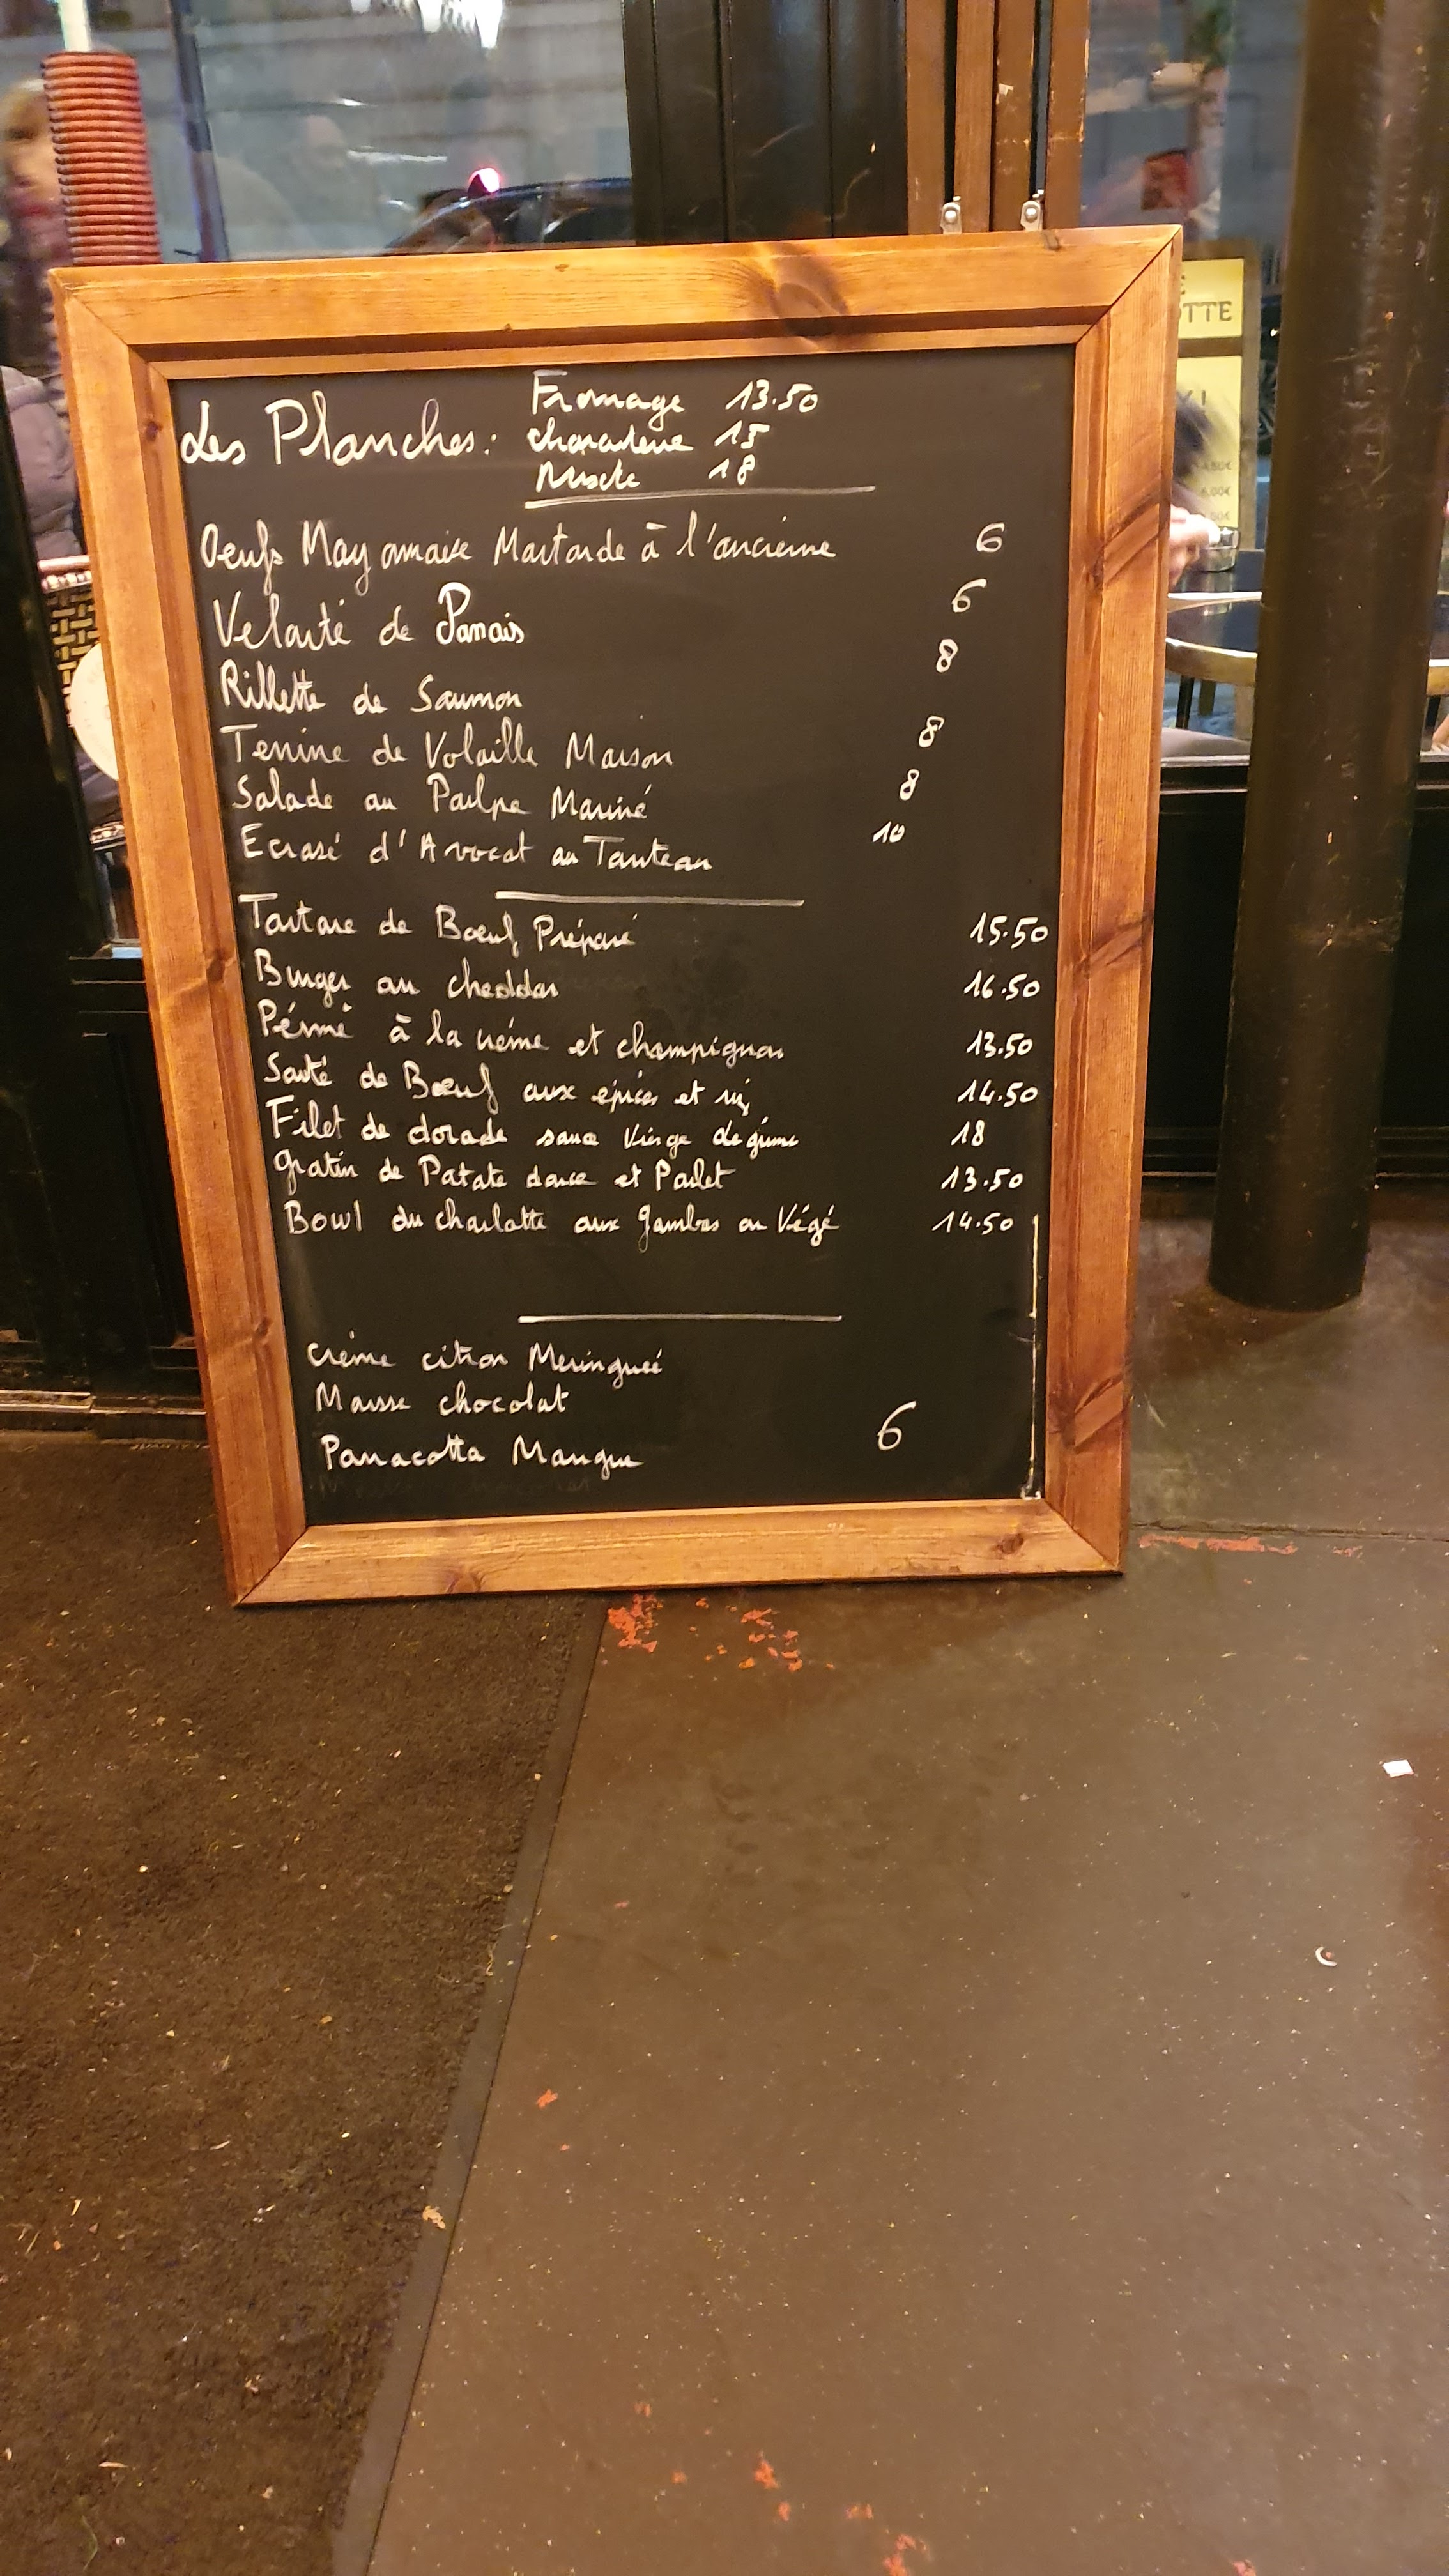 Les Planches: Fromage 13.50
charcuterie 15
Mixte 18
Oeufs Mayonnaise Moutarde à l'ancienne 6
Velouté de Panais 6
Rillette de Saumon 8
Terrine de Volaille Maison 8
Salade au Poulpe Mariné 8
Ecrasé d'Avocat au Tourteau 10
Tartare de Bœuf Préparé 15.50
Burger au cheddar 16.50
Pénné à la crème et champignons 13.50
Sauté de Bœuf aux épices et riz 14.50
Filet de dorade sauce Vierge Légume 18
Gratin de Patate douce et Poulet 13.50
Bowl du charlotte aux gambas ou Végé 14.50
Crème citron Meringuéé
Mousse chocolat
Panacotta Mangue 6
OTTE
4.50€
6.00€